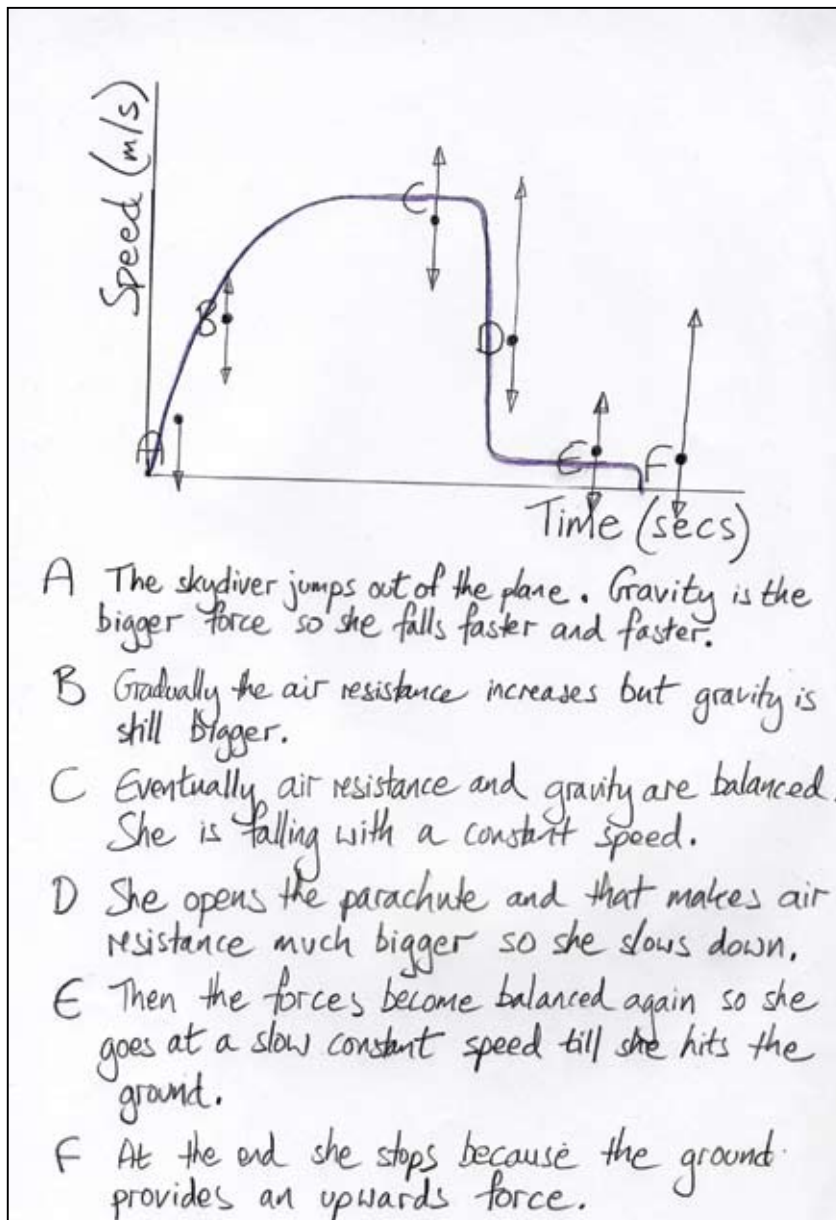 Speed (m/s)
C
B
D
A
E
F
Time (secs)
A The skydiver jumps out of the plane. Gravity is the
bigger force so she falls faster and faster.
B Gradually the air resistance increases but gravity is
still bigger.
C Eventually air resistance and gravity are balanced.
She is falling with a constant speed.
D She opens the parachute and that makes air
resistance much bigger so she slows down.
E Then the forces become balanced again so she
goes at a slow constant speed till she hits the
ground.
F At the end she stops because the ground
provides an upwards force.